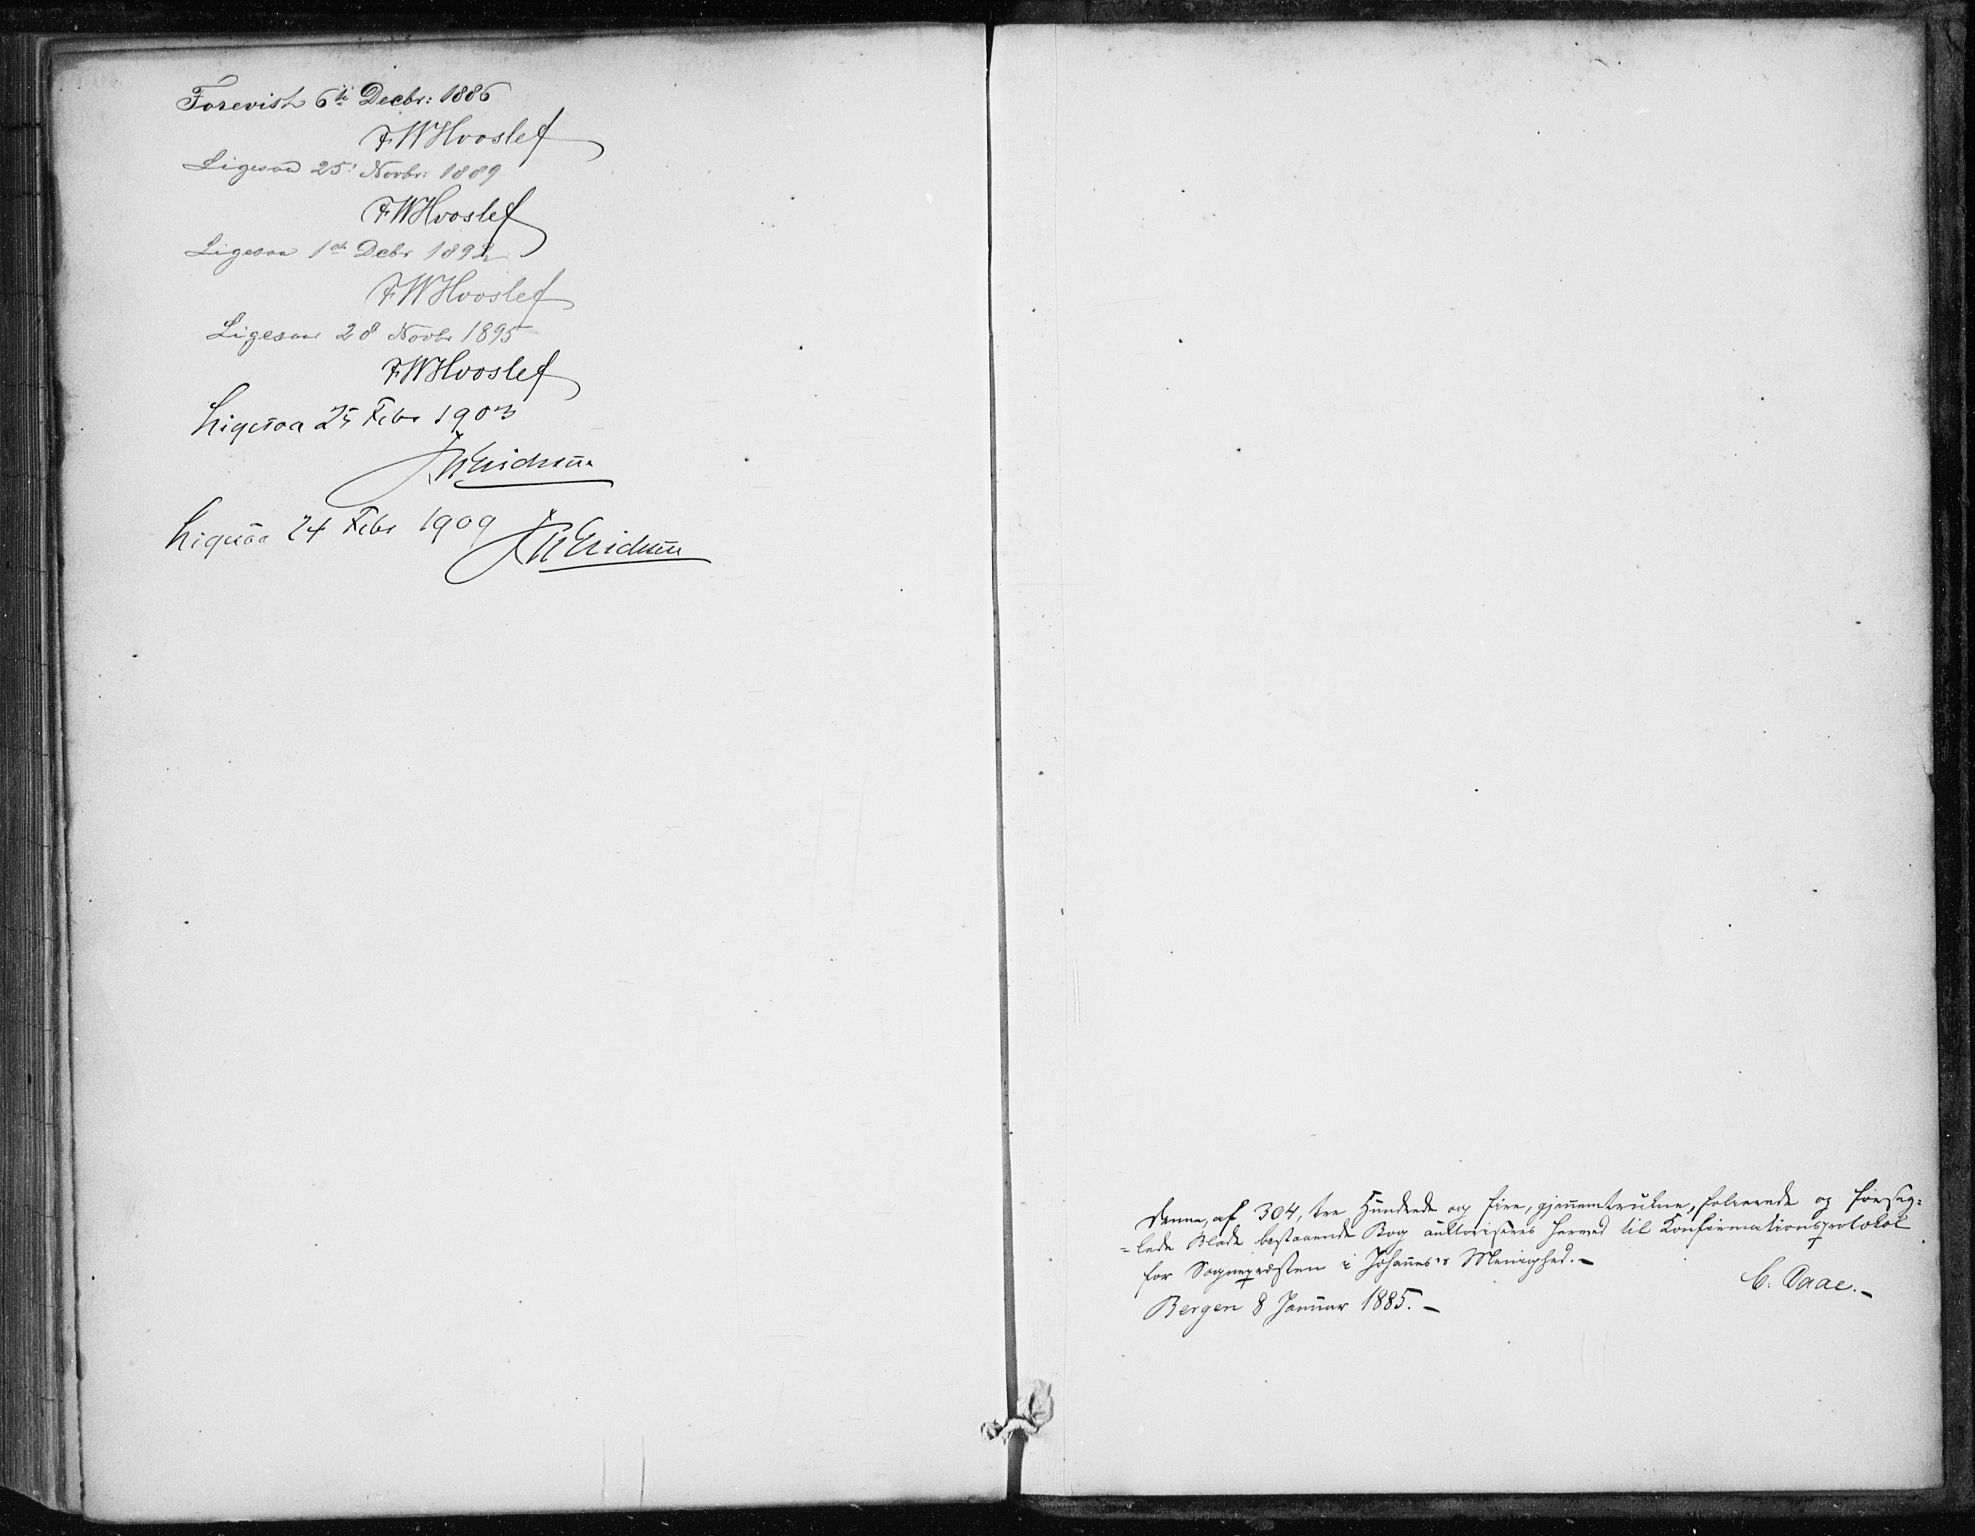 Forevist 6te Decbr: 1886
FWHvoslef
Ligesaa 25' Novbr: 1889
FWHvoslef
Ligesaa 1ste Debr 1892
FWHvoslef
Ligesaa 28 Novbr 1895
FWHvoslef
Ligesaa 25 Febr 1903
Erichsen
Ligesaa 24 Febr 1909 Erichsen
Denne, af 304, tre Hundrede og fire, gjennemtrukne, folierede og forseg=
=lede Blade bestaaende Bog auktoriseres herved til Konfirmationsprotokol
for Sognepræsten i Johannes's Menighed.-
C. Daae.-
Bergen 8 Januar 1885.-